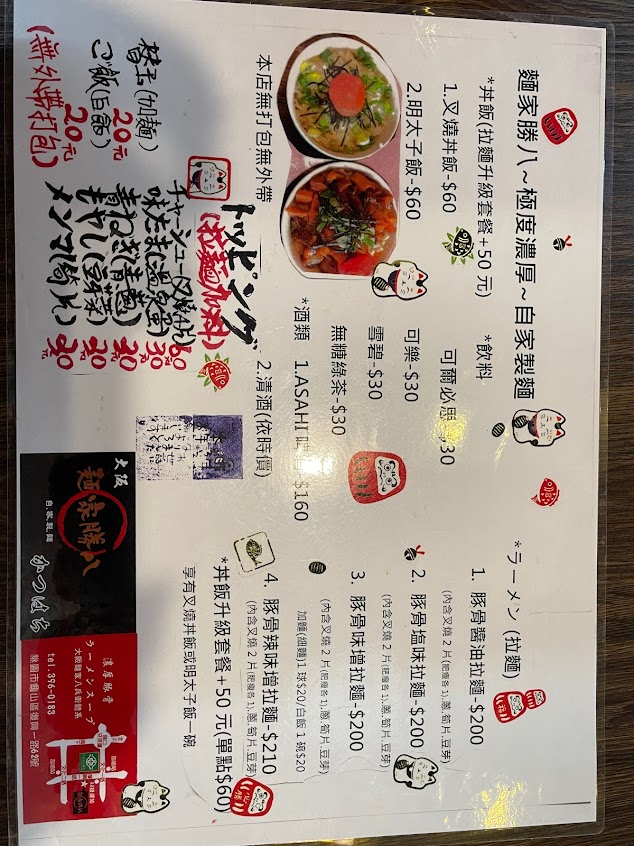 麵家勝八~極度濃厚~自家製麵
*丼飯(拉麵升級套餐+50元)
1.叉燒丼飯-$60
2.明太子飯-$60
本店無打包無外帶
*飲料
可爾必思-$30
可樂-$30
雪碧-$30
無糖綠茶-$30
*酒類
1.ASAHI $160
2.清酒(依時價)
*ラーメン(拉麵)
1. 豚骨醬油拉麵-$200
(內含叉燒2片(肥瘦各1),蔥,筍片,豆芽)
2. 豚骨塩味拉麵-$200
(內含叉燒2片(肥瘦各1),蔥,筍片,豆芽)
3. 豚骨味增拉麵-$200
(內含叉燒2片(肥瘦各1),蔥,筍片,豆芽)
加麵(細麵)1球$20/白飯1碗$20
4. 豚骨辣味增拉麵-$210
(內含叉燒2片(肥瘦各1),蔥,筍片,豆芽)
*丼飯升級套餐+50元(單點$60)
享有叉燒丼飯或明太子飯一碗
替玉(加麵) 20元
ご飯(白飯) 20元
(無外帶打包)
トッピング
(拉麵加料)
チャーシュー(叉燒片) 60元
味たま(溫泉蛋) 30元
青ねぎ(青蔥) 20元
もやし(豆芽菜) 20元
メンマ(筍片) 20元
大阪
麵家勝八
自.家.製.麵
かつはち
濃厚豚骨
ラーメンスープ
大阪麵家八兵衛體系
tel.396-0183
桃園市龜山區復興一路62號